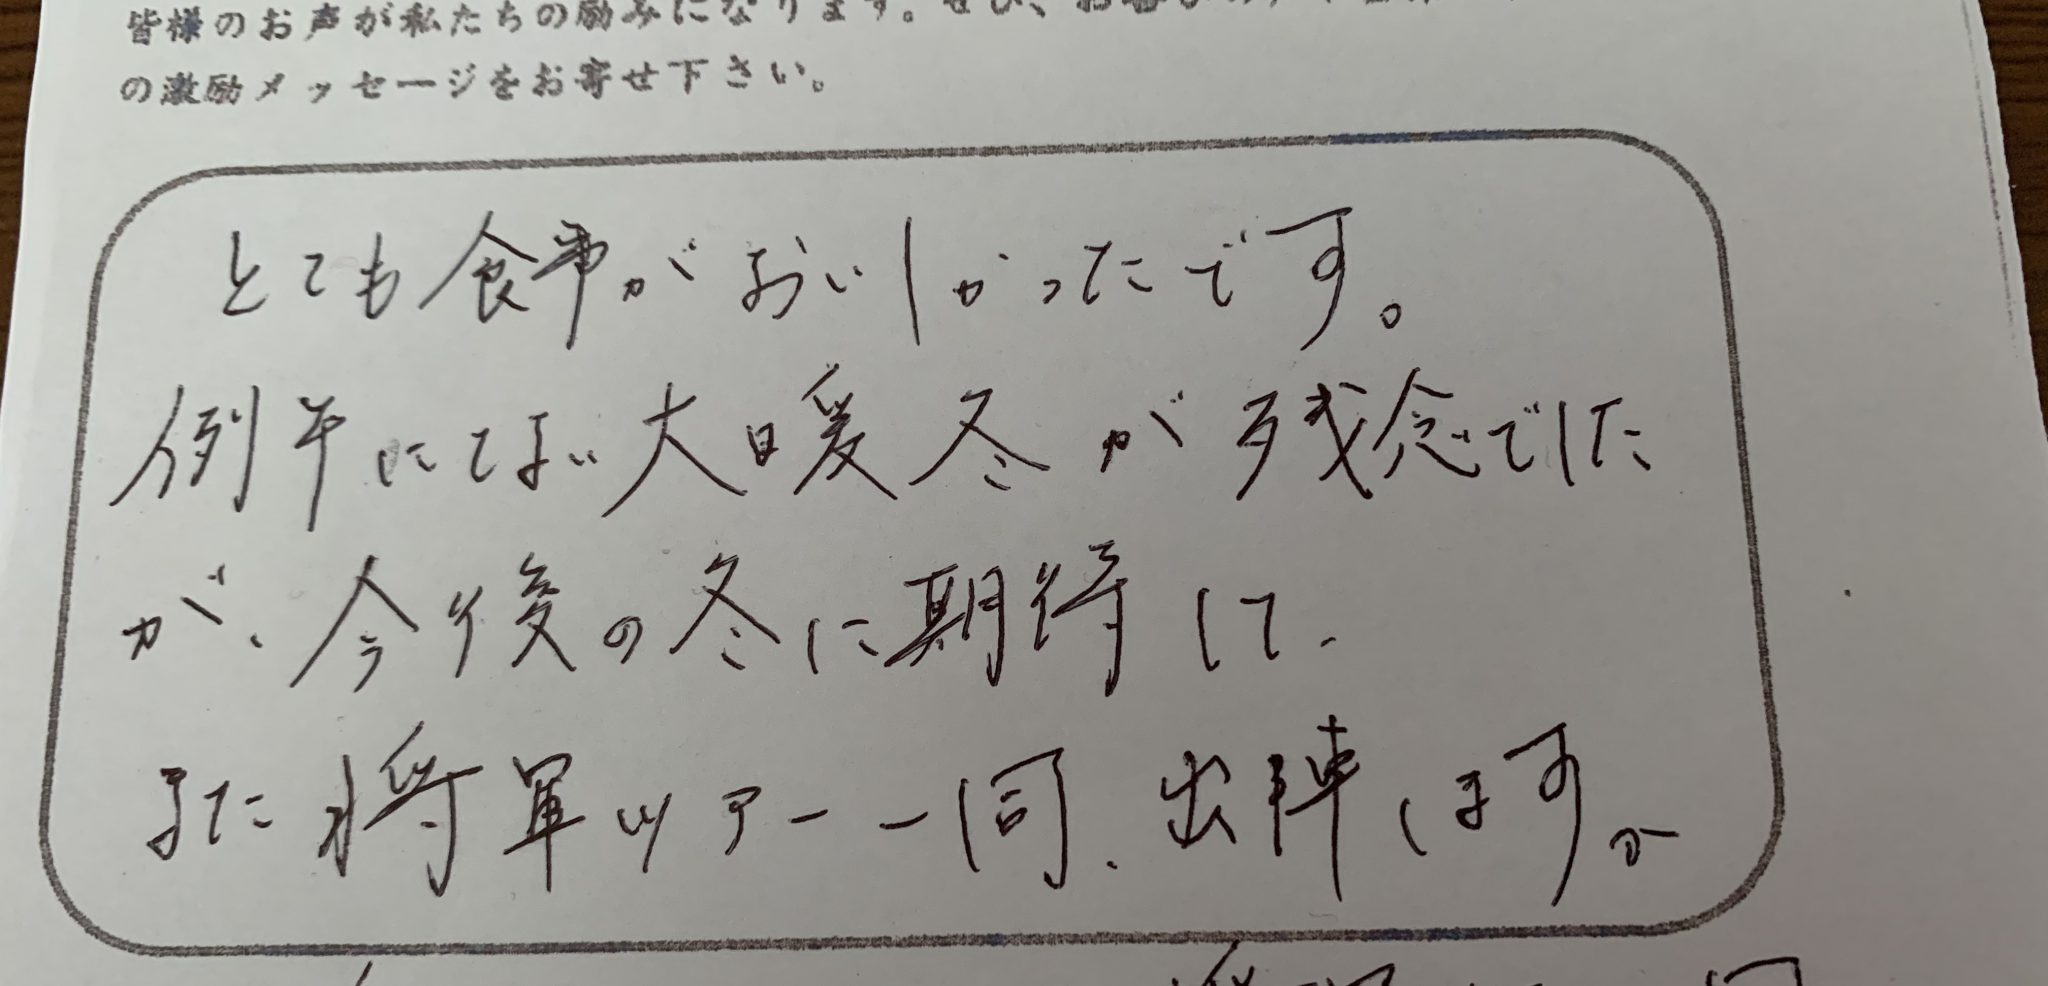 皆様のお声が私たちの励みになります。ぜひ、お
の激励メッセージをお寄せ下さい。
とても食事がおいしかったです。
例年にない大暖冬が残念でした
が、今後の冬に期待して、
また将軍ツアー一同、出陣します。